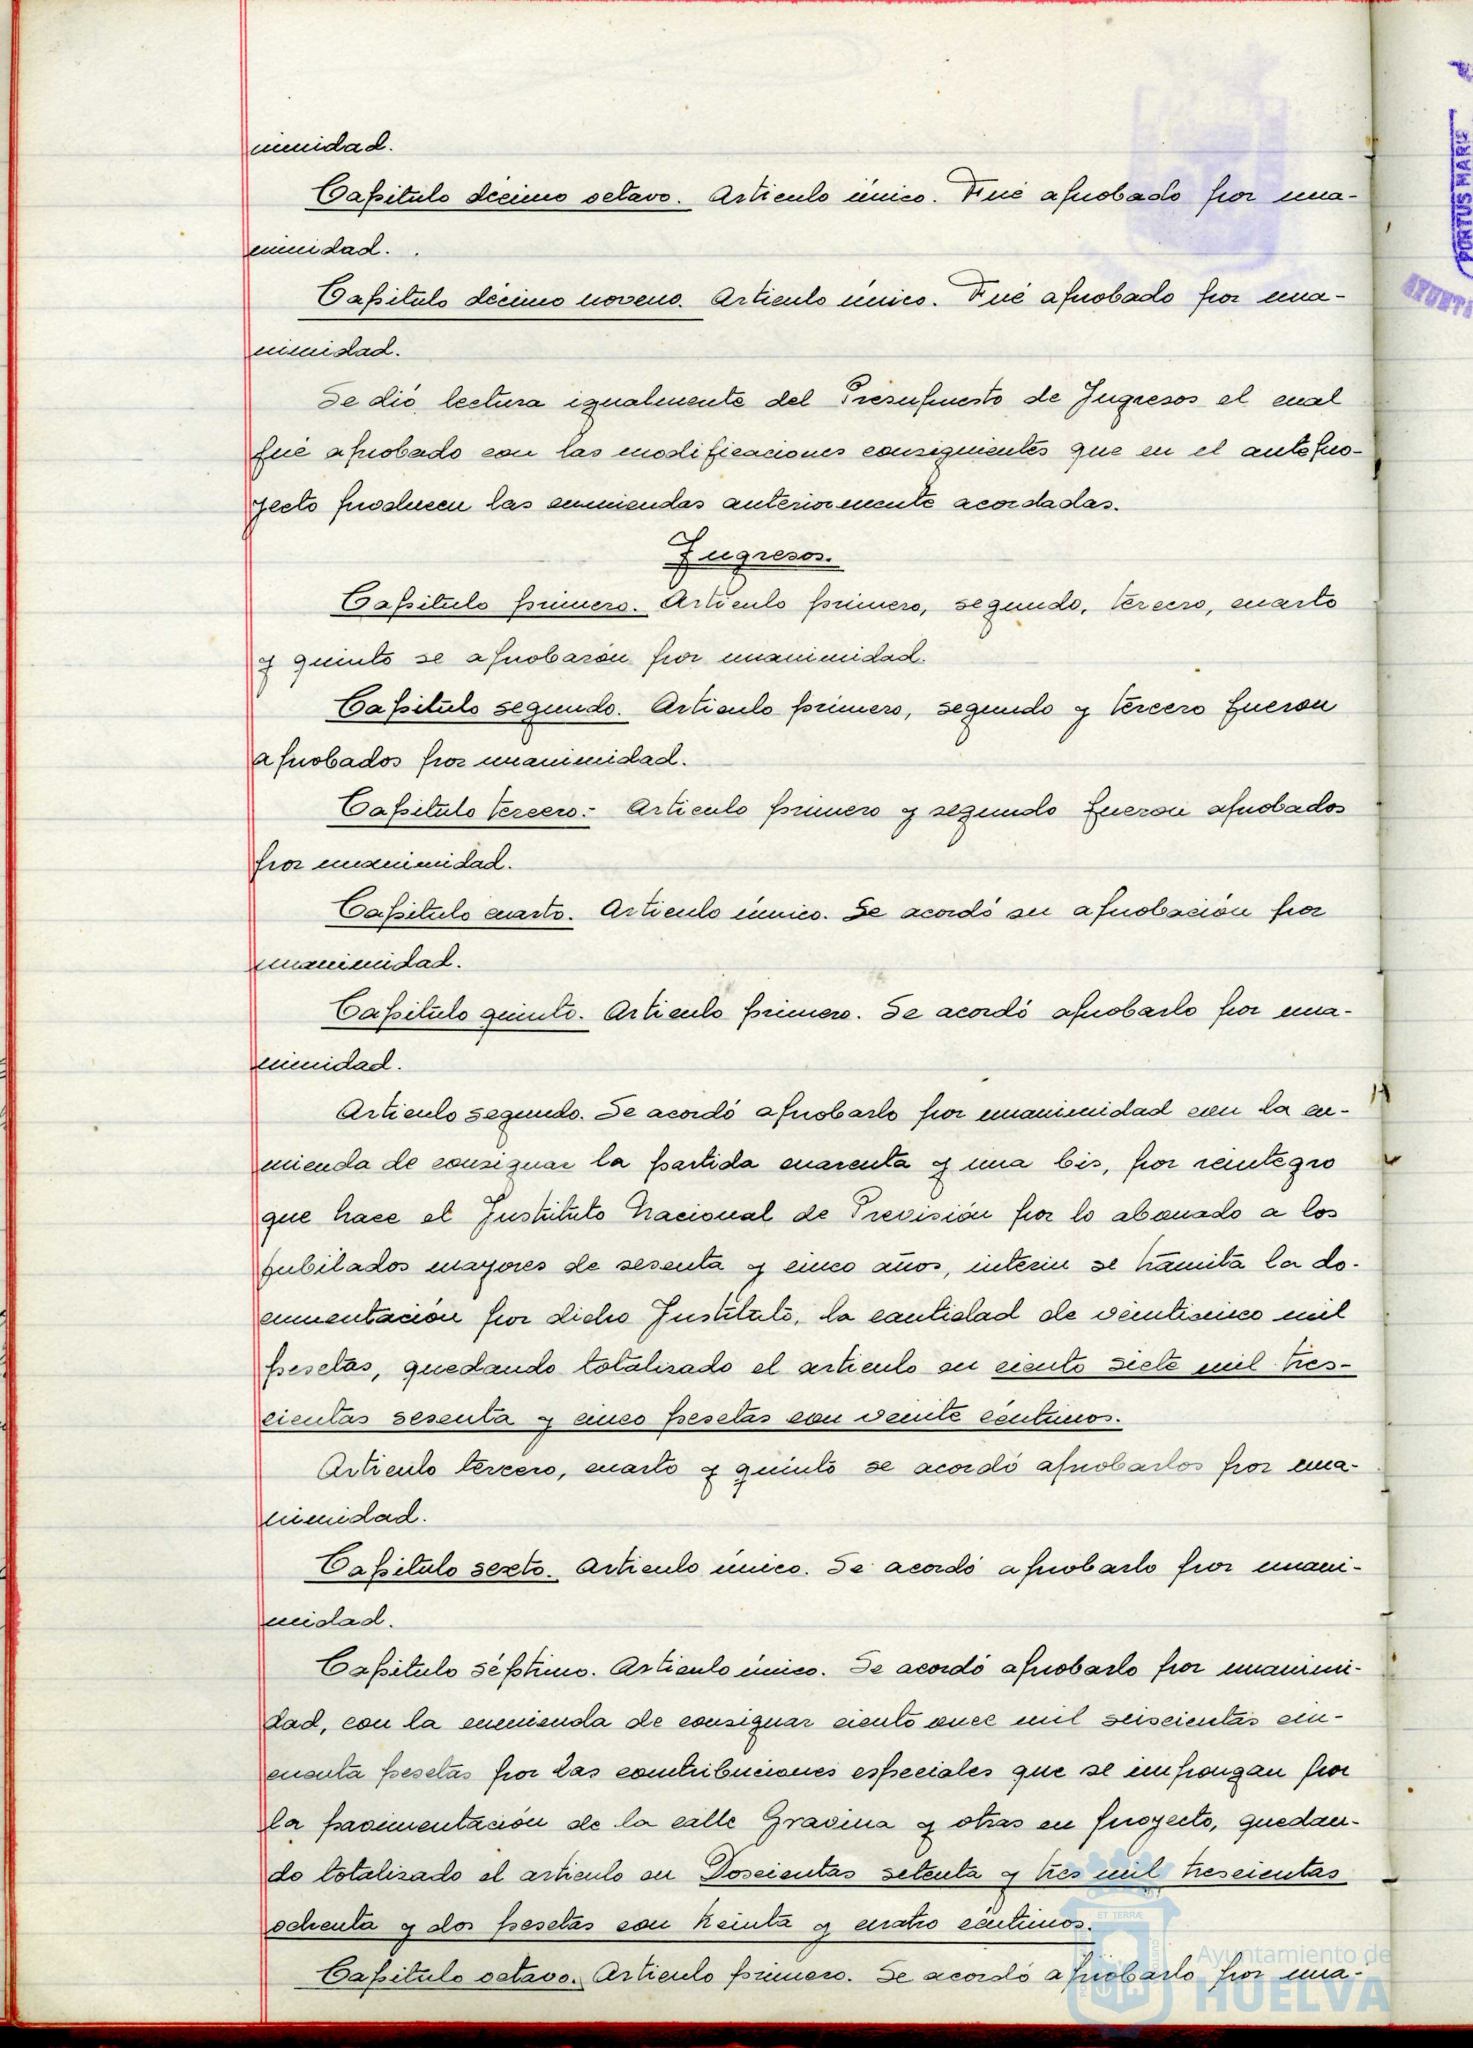 nimidad.
Capitulo décimo octavo. Articulo único. Fué aprobado por una-
nimidad.
Capitulo décimo noveno. Articulo único. Fué aprobado por una-
nimidad.
Se dió lectura igualmente del Presupuesto de Ingresos el cual
fué aprobado con las modificaciones consiguientes que en el antepro-
yecto producen las enmiendas anteriormente acordadas.
Ingresos.
Capitulo primero. Articulo primero, segundo, tercero, cuarto
y quinto se aprobarón por unanimidad.
Capitulo segundo. Articulo primero, segundo y tercero fueron
aprobados por unanimidad.
Capitulo tercero:- Articulo primero y segundo fueron aprobados
por unanimidad.
Capitulo cuarto. Articulo único. Se acordó su aprobación por
unanimidad.
Capitulo quinto. Articulo primero. Se acordó aprobarlo por una-
nimidad.
Articulo segundo. Se acordó aprobarlo por unanimidad con la en-
mienda de consignar la partida cuarenta y una bis, por reintegro
que hace el Instituto Nacional de Previsión por lo abonado a los
jubilados mayores de sesenta y cinco años, interin se tramita la do-
cumentación por dicho Instituto, la cantidad de veinticinco mil
pesetas, quedando totalizado el articulo en ciento siete mil tres-
cientas sesenta y cinco pesetas con veinte céntimos.
Articulo tercero, cuarto y quinto se acordó aprobarlos por una-
nimidad.
Capitulo sexto. Articulo único. Se acordó aprobarlo por unani-
midad.
Capitulo séptimo. Articulo único. Se acordó aprobarlo por unanimi-
dad, con la enmienda de consignar ciento once mil seiscientas cin-
cuenta pesetas por las contribuciones especiales que se impongan por
la pavimentación de la calle Gravina y otras en proyecto, quedan-
do totalizado el articulo en Doscientas setenta y tres mil trescientas
ochenta y dos pesetas con treinta y cuatro céntimos.
Capitulo octavo. Articulo primero. Se acordó aprobarlo por una-
PORTUS MARIS
AYUNTA
ET TERRÆ
Ayuntamiento de
HUELVA